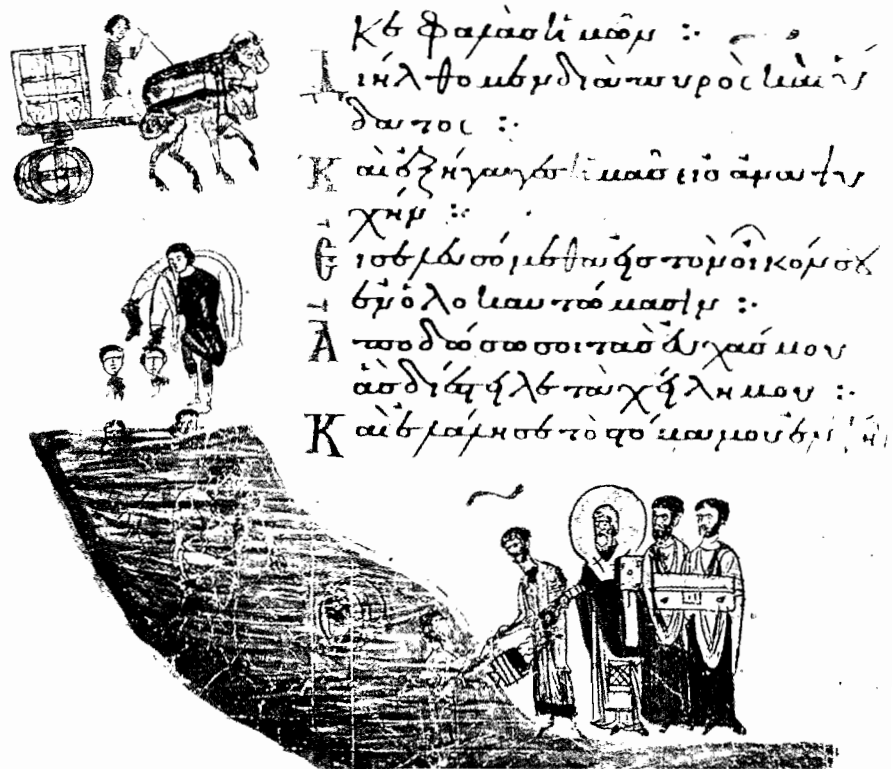 κεφαλὰς ἡμῶν :·
Διήλθομεν διὰ πυρὸς καὶ ὕ
δατος :·
Καὶ ἐξήγαγες ἡμᾶς εἰς ἀναψυ
χήν :·
Εἰσελευσόμεθα εἰς τὸν οἶκόν σου
ἐν ὁλοκαυτώμασιν :·
Ἀποδώσω σοι τὰς εὐχάς μου
ἃς διέστειλε τὰ χείλη μου :·
Καὶ ἐλάλησε τὸ στόμα μου ἐν τῆ